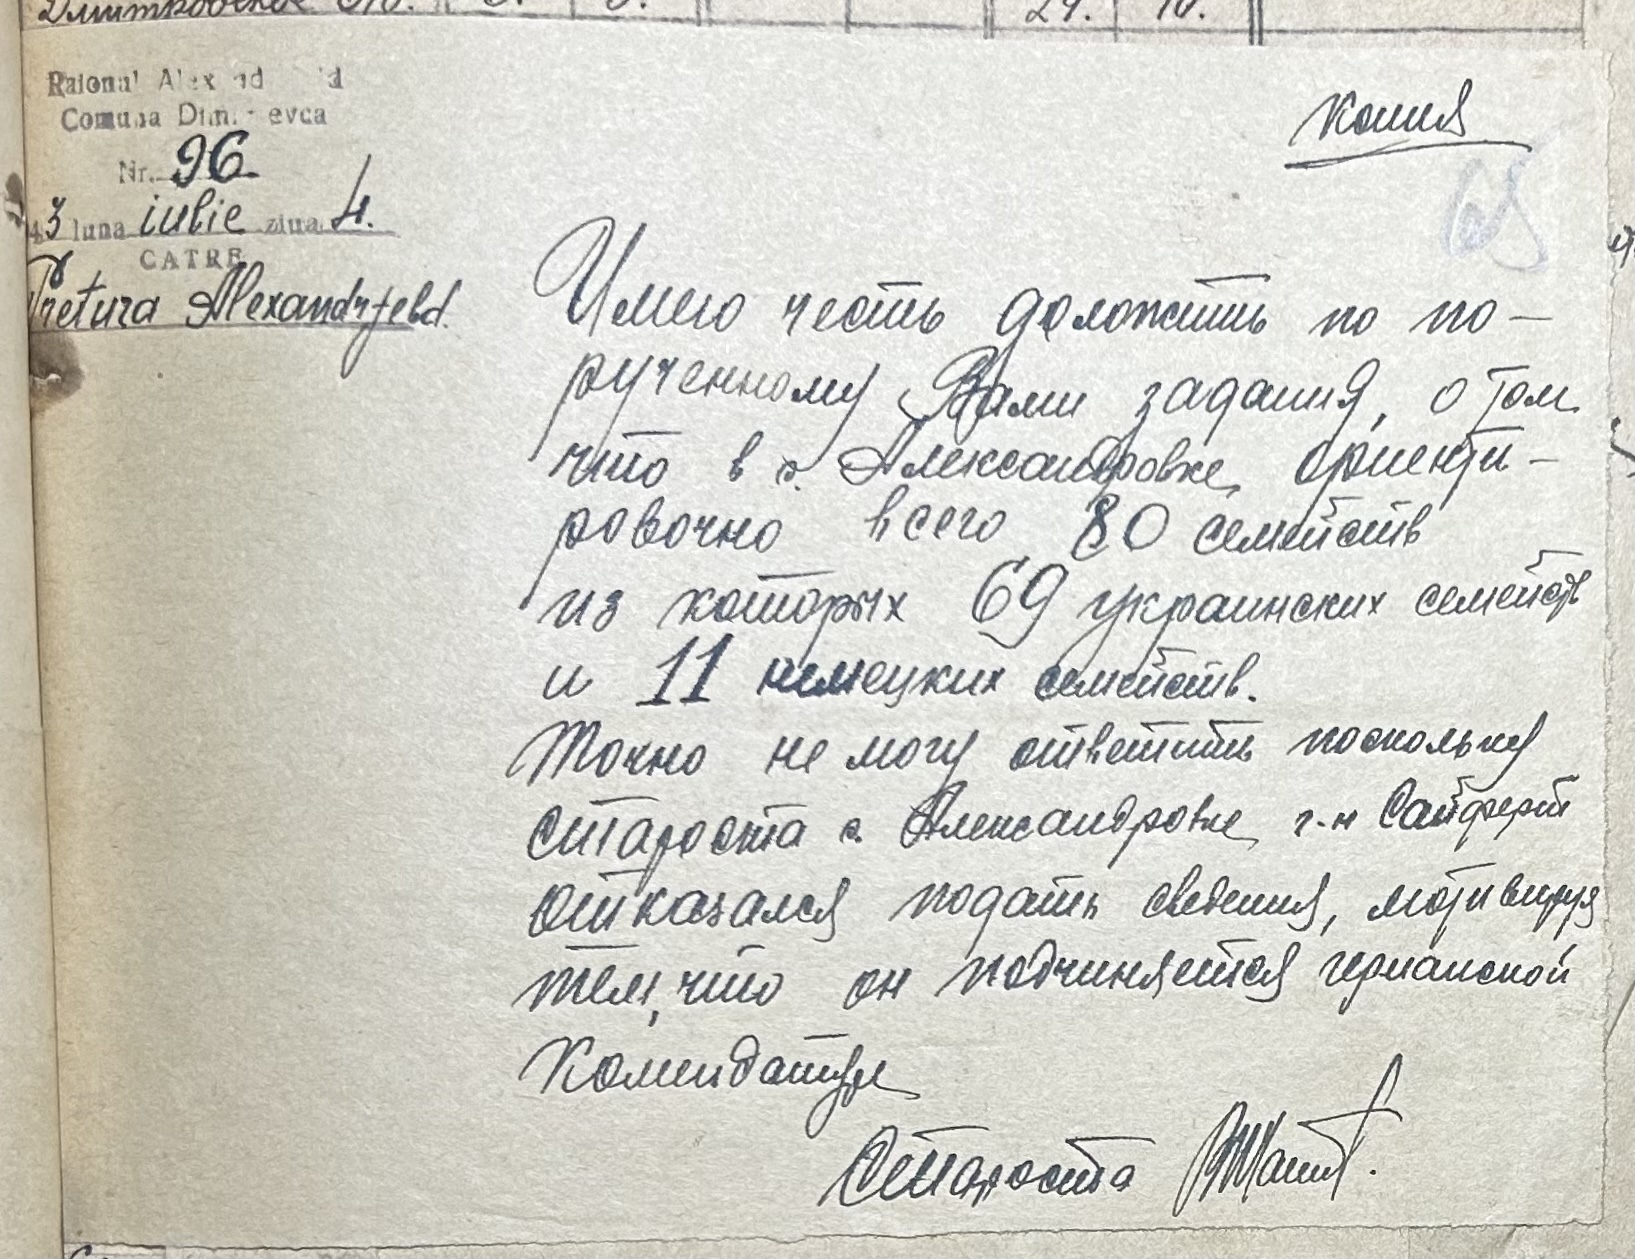 24. 10.
Raionul Alex nd ld
Comuna Dim evca
Nr. 96.
43 luna iulie ziua 4.
CATRE
Pretura Alexandrfeld.
копия
68
Имею честь доложить по по-
рученному Вами задания, о том
что в с. Александровке ориенти-
ровочно всего 80 семейств
из которых 69 украинских семейств
и 11 немецких семейств.
Точно не могу ответить поскольку
Староста с. Александровке г-н Сайферт
отказался подать сведения, мотивируя
тем, что он подчиняется германской
Комендатуре
Староста